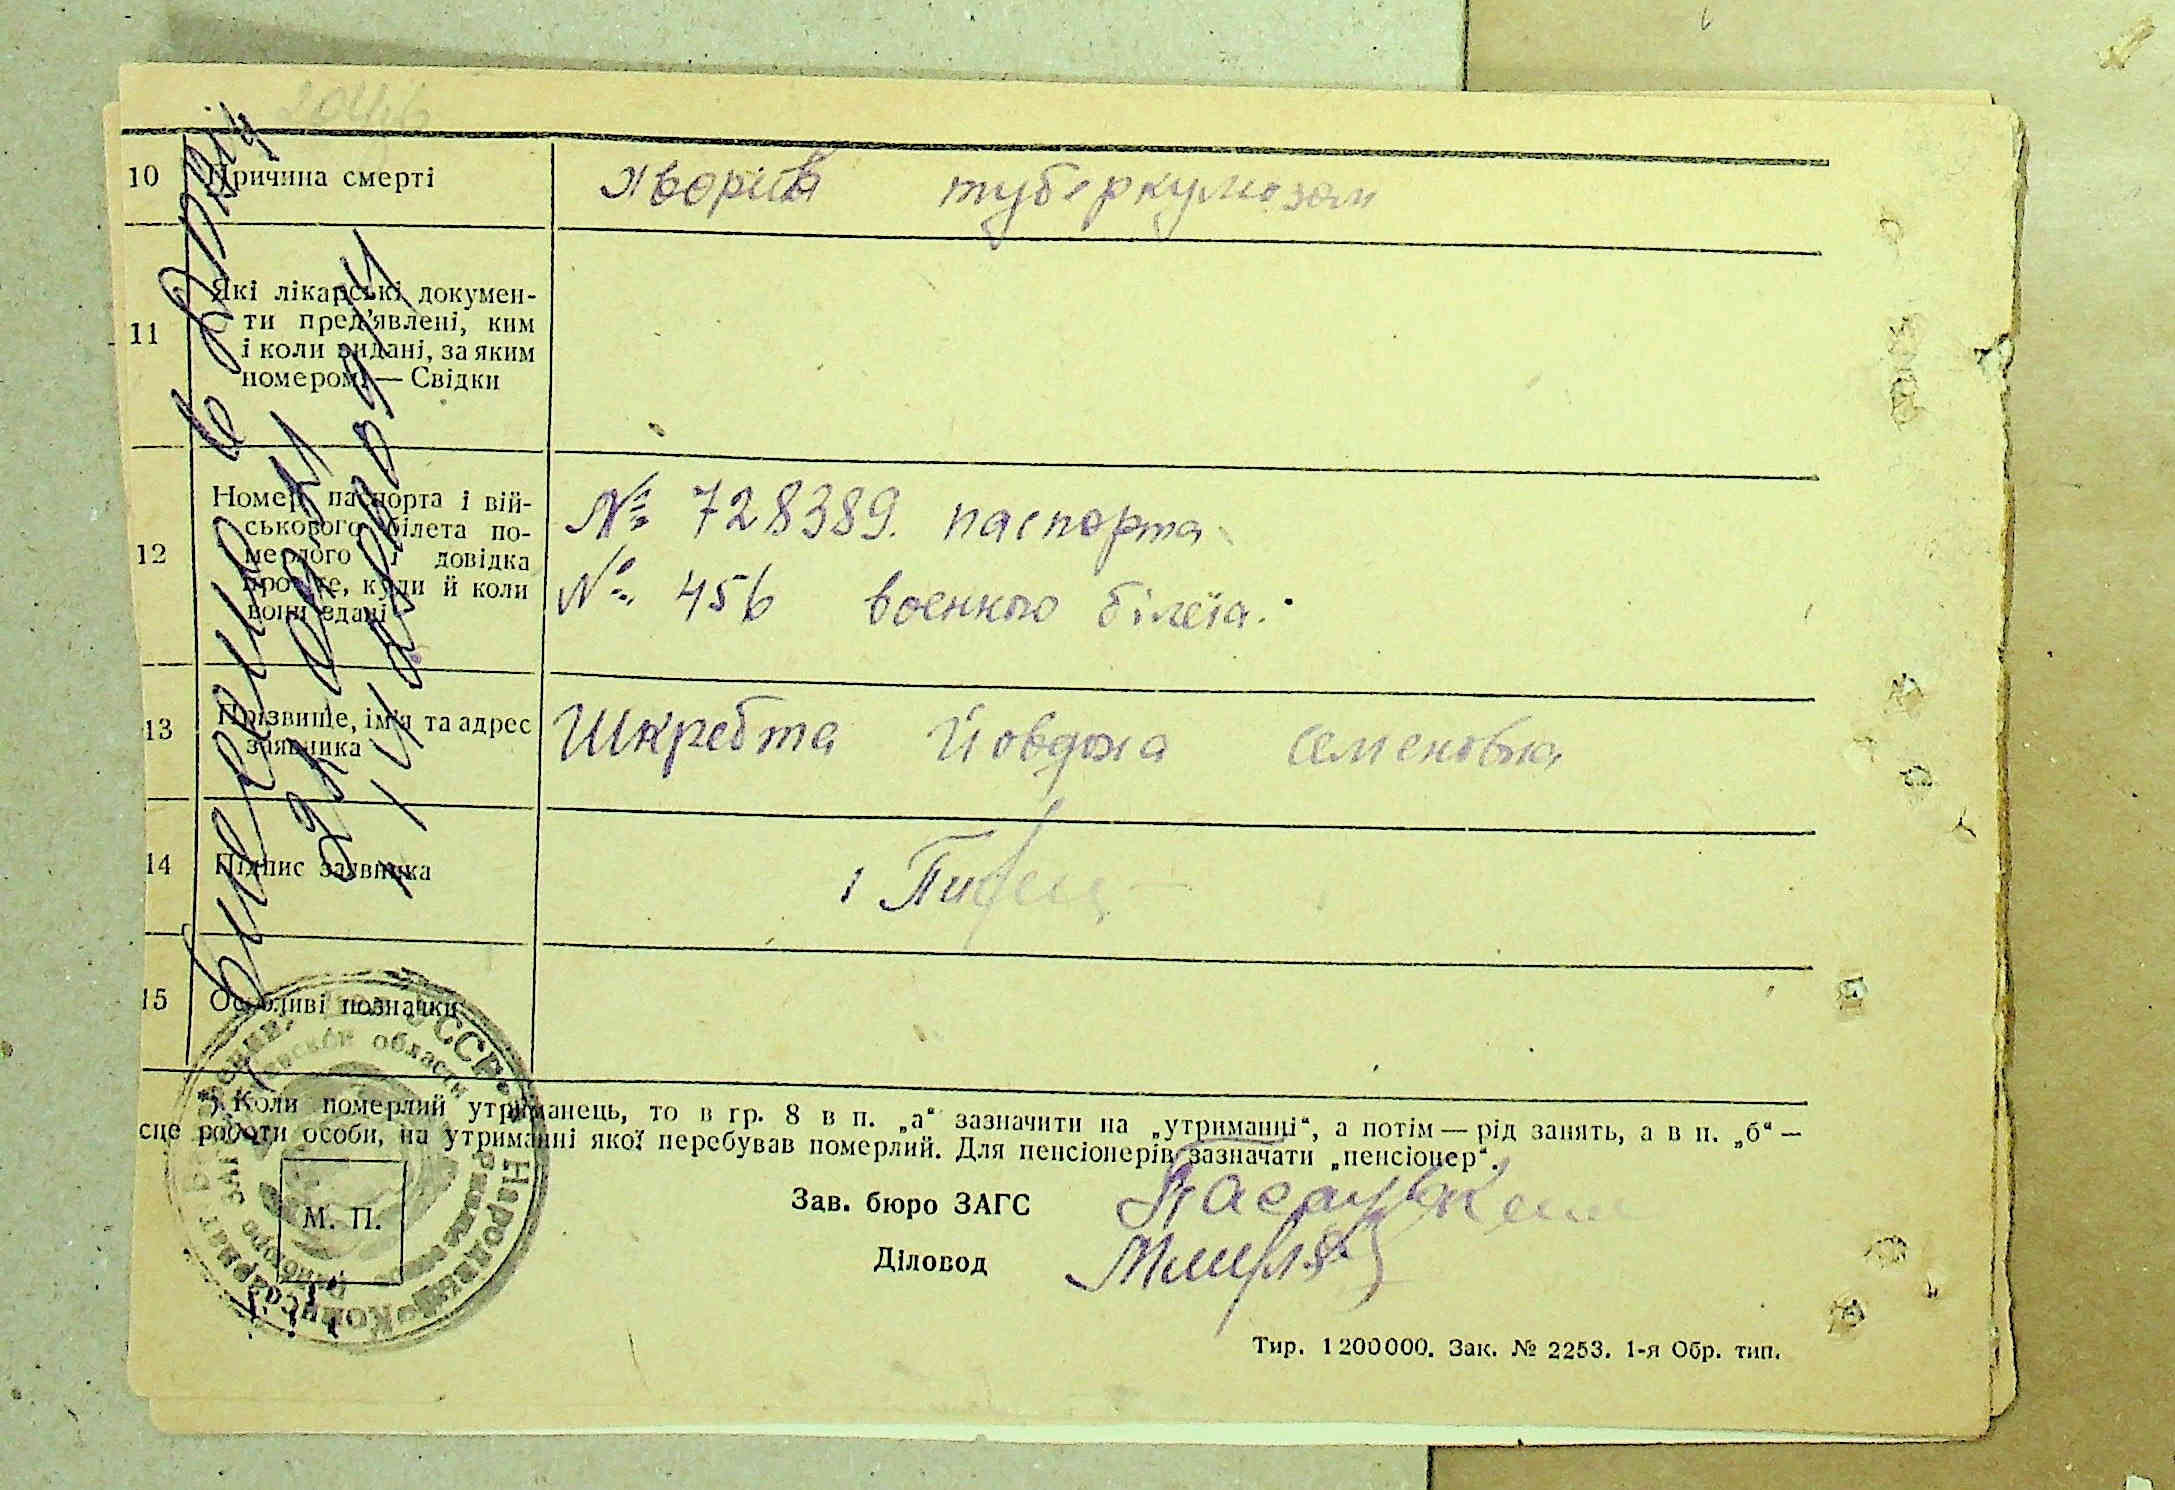 10 Причина смерті
хворів туберкульозом
11 Які лікарські докумен-
ти пред'явлені, ким
і коли видані, за яким
номером — Свідки
12 Номер паспорта і вій-
ськового білета по-
мерлого і довідка
про те, куди й коли
вони здані
№ 728389. паспорта
№ 456 военкого білета.
13 Прізвище, ім'я та адрес
заявника
Шкребта Йовдоха Семеновна
14 Підпис заявника
15 Особливі позначки
*) Коли померлий утриманець, то в гр. 8 в п. „а“ зазначити на „утриманні“, а потім — рід занять, а в п. „б“ —
сце роботи особи, на утриманні якої перебував померлий. Для пенсіонерів зазначати „пенсіонер“.
М. П.
Зав. бюро ЗАГС
Діловод
Тир. 1200000. Зак. № 2253. 1-я Обр. тип.